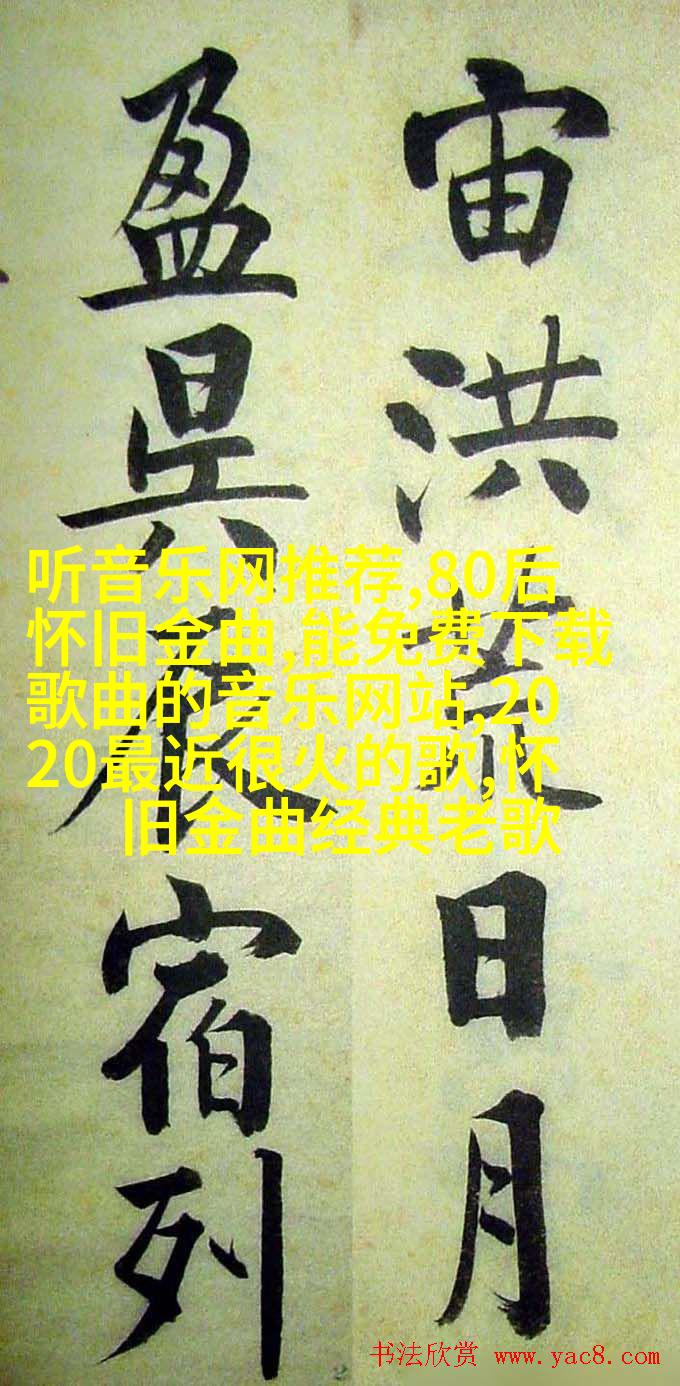 宙洪荒日月
盈昃辰宿列
听音乐网推荐,80后
怀旧金曲,能免费下载
歌曲的音乐网站,20
20最近很火的歌,怀
旧金曲经典老歌
书法欣赏 www.yac8.com